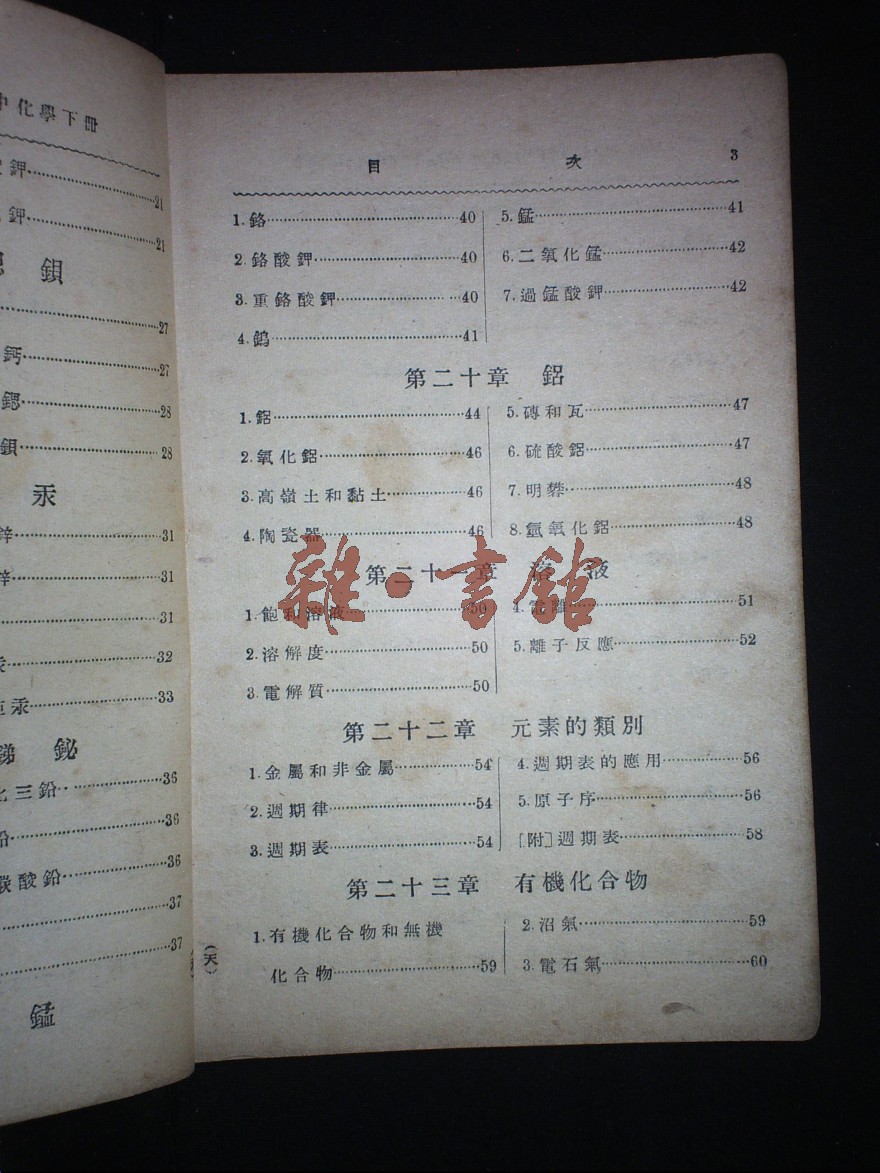 中化學下冊
鉀……21
鉀……21
鋇
……27
鈣……27
鍶……28
鋇……28
汞
鋅……31
鋅……31
……31
……32
汞……33
銻 鉍
三鉛……36
鉛……36
酸鉛……36
……37
……37
錳
目 次 3
1.鉻……40
2.鉻酸鉀……40
3.重鉻酸鉀……40
4.鎢……41
5.錳……41
6.二氧化錳……42
7.過錳酸鉀……42
第二十章 鋁
1.鋁……44
2.氧化鋁……46
3.高嶺土和黏土……46
4.陶瓷器……46
5.磚和瓦……47
6.硫酸鋁……47
7.明礬……48
8.氫氧化鋁……48
第二十一章 溶液
1.飽和溶液……50
2.溶解度……50
3.電解質……50
4.電離……51
5.離子反應……52
第二十二章 元素的類別
1.金屬和非金屬……54
2.週期律……54
3.週期表……54
4.週期表的應用……56
5.原子序……56
[附]週期表……58
第二十三章 有機化合物
1.有機化合物和無機
化合物……59
2.沼氣……59
3.電石氣……60
(天)
雜·書館